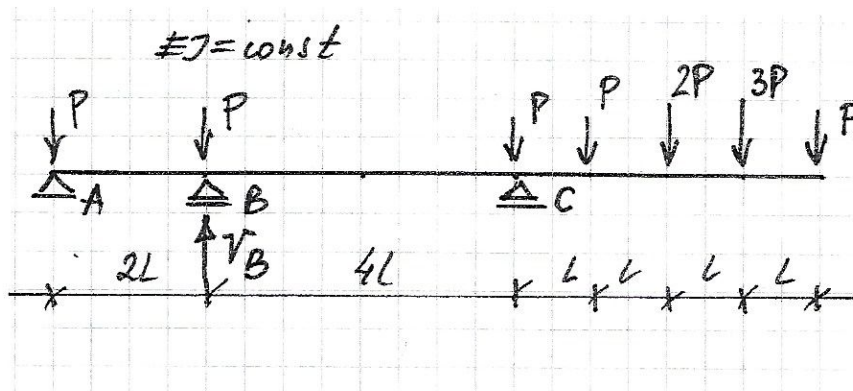 EJ=const
P P P P 2P 3P P
A B C
V_B
2L 4L L L L L